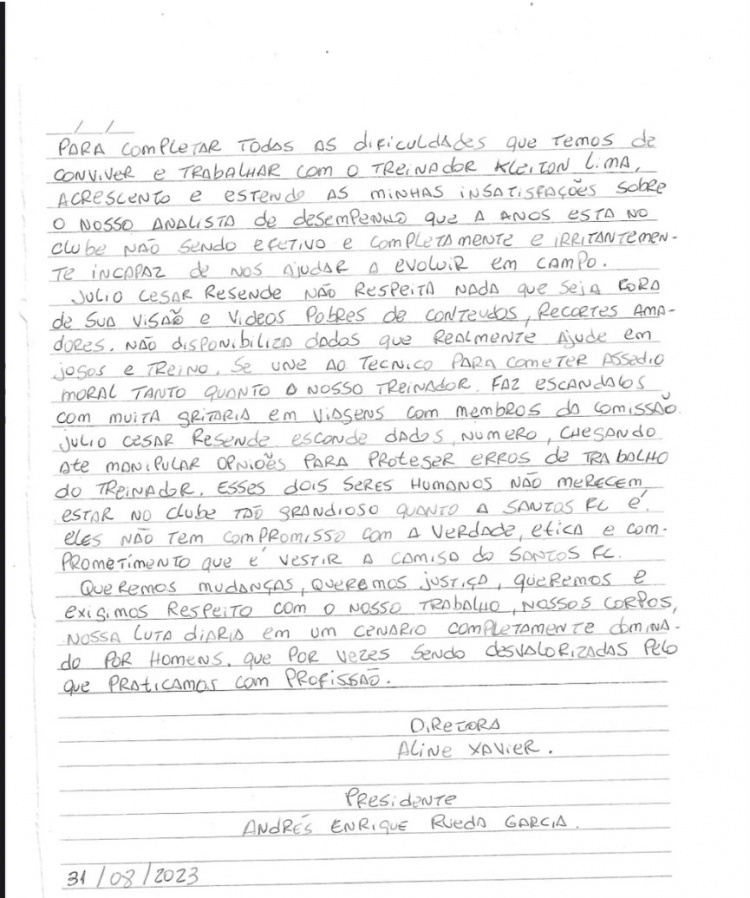 __/__/__
PARA COMPLETAR TODAS AS dificuldades que temos de
CONVIVER e TRABALHAR com o TREINADOR KLEITON Lima,
ACRESCENTO e estendo AS minhas insatisfações sobre
O NOSSO ANALISTA de desempenho que A ANOS ESTA NO
clube NÃO sendo efetivo e completamente e irritantemen-
te incapaz de nos ajudar a evoluir em campo.
Julio Cesar Resende NÃO Respeita NADA que seja fora
de sua visão e videos pobres de conteudos, Recortes ama-
dores. NÃO disponibiliza dados que Realmente ajude em
jogos e treino. Se une ao tecnico para cometer assedio
moral tanto quanto o nosso treinador. Faz escandalos
com muita gritaria em viagens com membros da comissão.
Julio cesar Resende esconde dados, numero, chegando
ate manipular opniões para proteger erros de trabalho
do treinador. Esses dois seres humanos não merecem
estar no clube tão grandioso quanto a Santos FC é.
eles não tem compromisso com a verdade, etica e com-
prometimento que é vestir a camisa do Santos FC.
Queremos mudanças, queremos justiça, queremos e
exigimos respeito com o nosso trabalho, nossos corpos,
nossa luta diaria em um cenario completamente domina-
do por homens. que por vezes sendo desvalorizadas pelo
que praticamos com profissão.
Diretora
Aline Xavier.
Presidente
Andrés Enrique Rueda Garcia.
31/08/2023